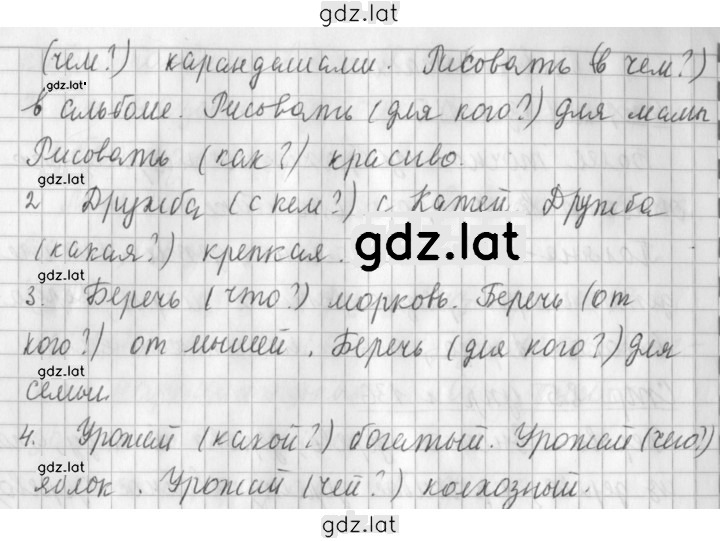 gdz.lat
(чем?) карандашами. Рисовать (в чем?)
gdz.lat
в альбоме. Рисовать (для кого?) для мамы
Рисовать (как?) красиво.
gdz.lat
2 Дружба (с кем?) с Катей Дружба
(какая?) крепкая.
gdz.lat
gdz.lat
3. Беречь (что?) морковь. Беречь (от
кого?) от мышей. Беречь (для кого?) для
gdz.lat
семьи.
4. Урожай (какой?) богатый. Урожай (чего?)
gdz.lat
яблок. Урожай (чей?) колхозный.
gdz.lat